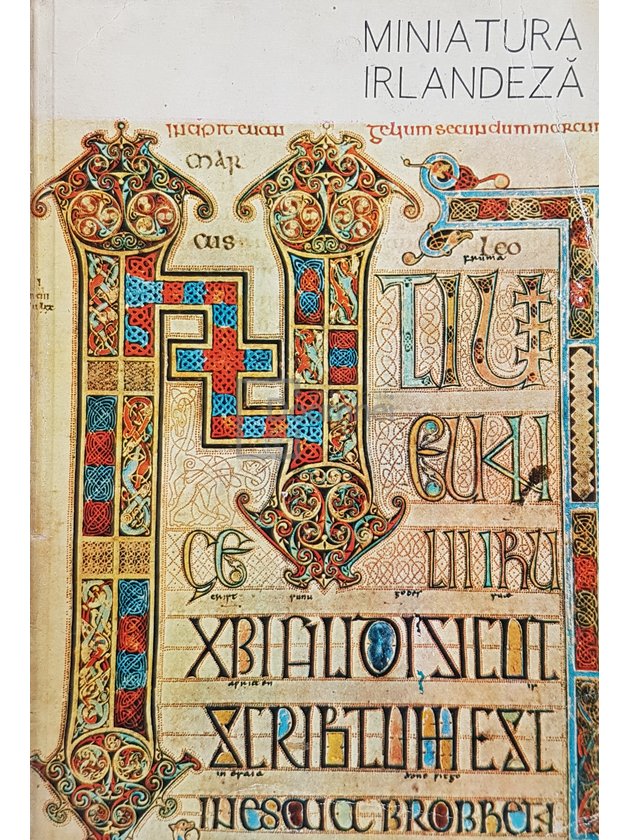 MINIATURA
IRLANDEZĂ
incipit euan gelium secundum marcum
MAR
CUS LEO
fruma
INITIUM
EUAN
GE LII IHU
XRI FILI DI SICUT
SCRIBTUM EST
IN ESAIA PROPHETA